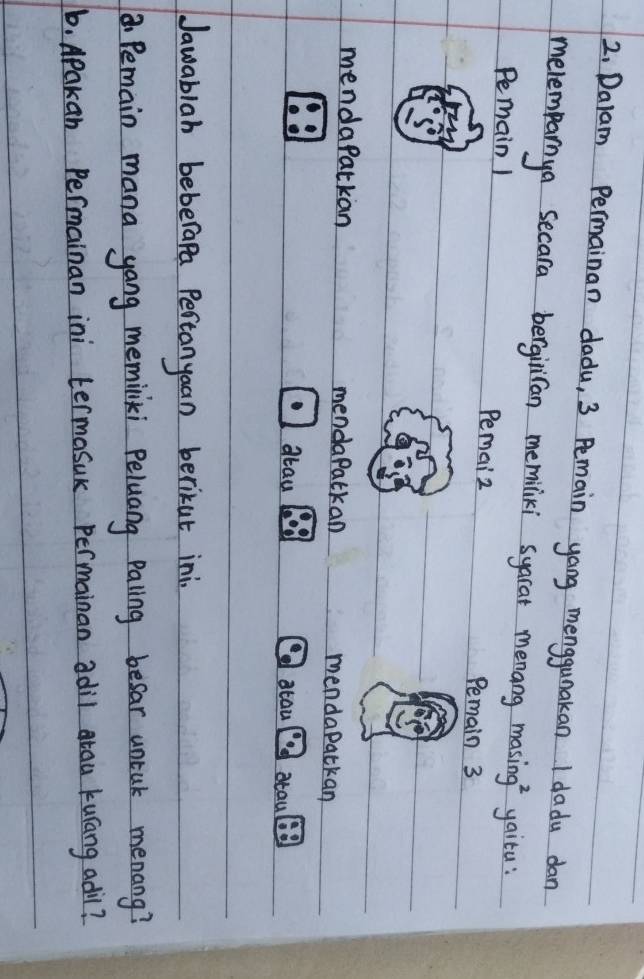 2. Dalam Permainan dadu, 3 Pemain yang menggunakan 1 dadu dan
melemparnya secara bergiliran memiliki syarat menang masing² yaitu:
Pemain 1 Pemai 2 Pemain 3
mendapatkan mendapatkan mendapatkan
atau atau atau
Jawablah beberapa Pertanyaan berikut ini.
a. Pemain mana yang memiliki Peluang Paling besar untuk menang?
b. Apakah Permainan ini termasuk Permainan adil atau kurang adil?